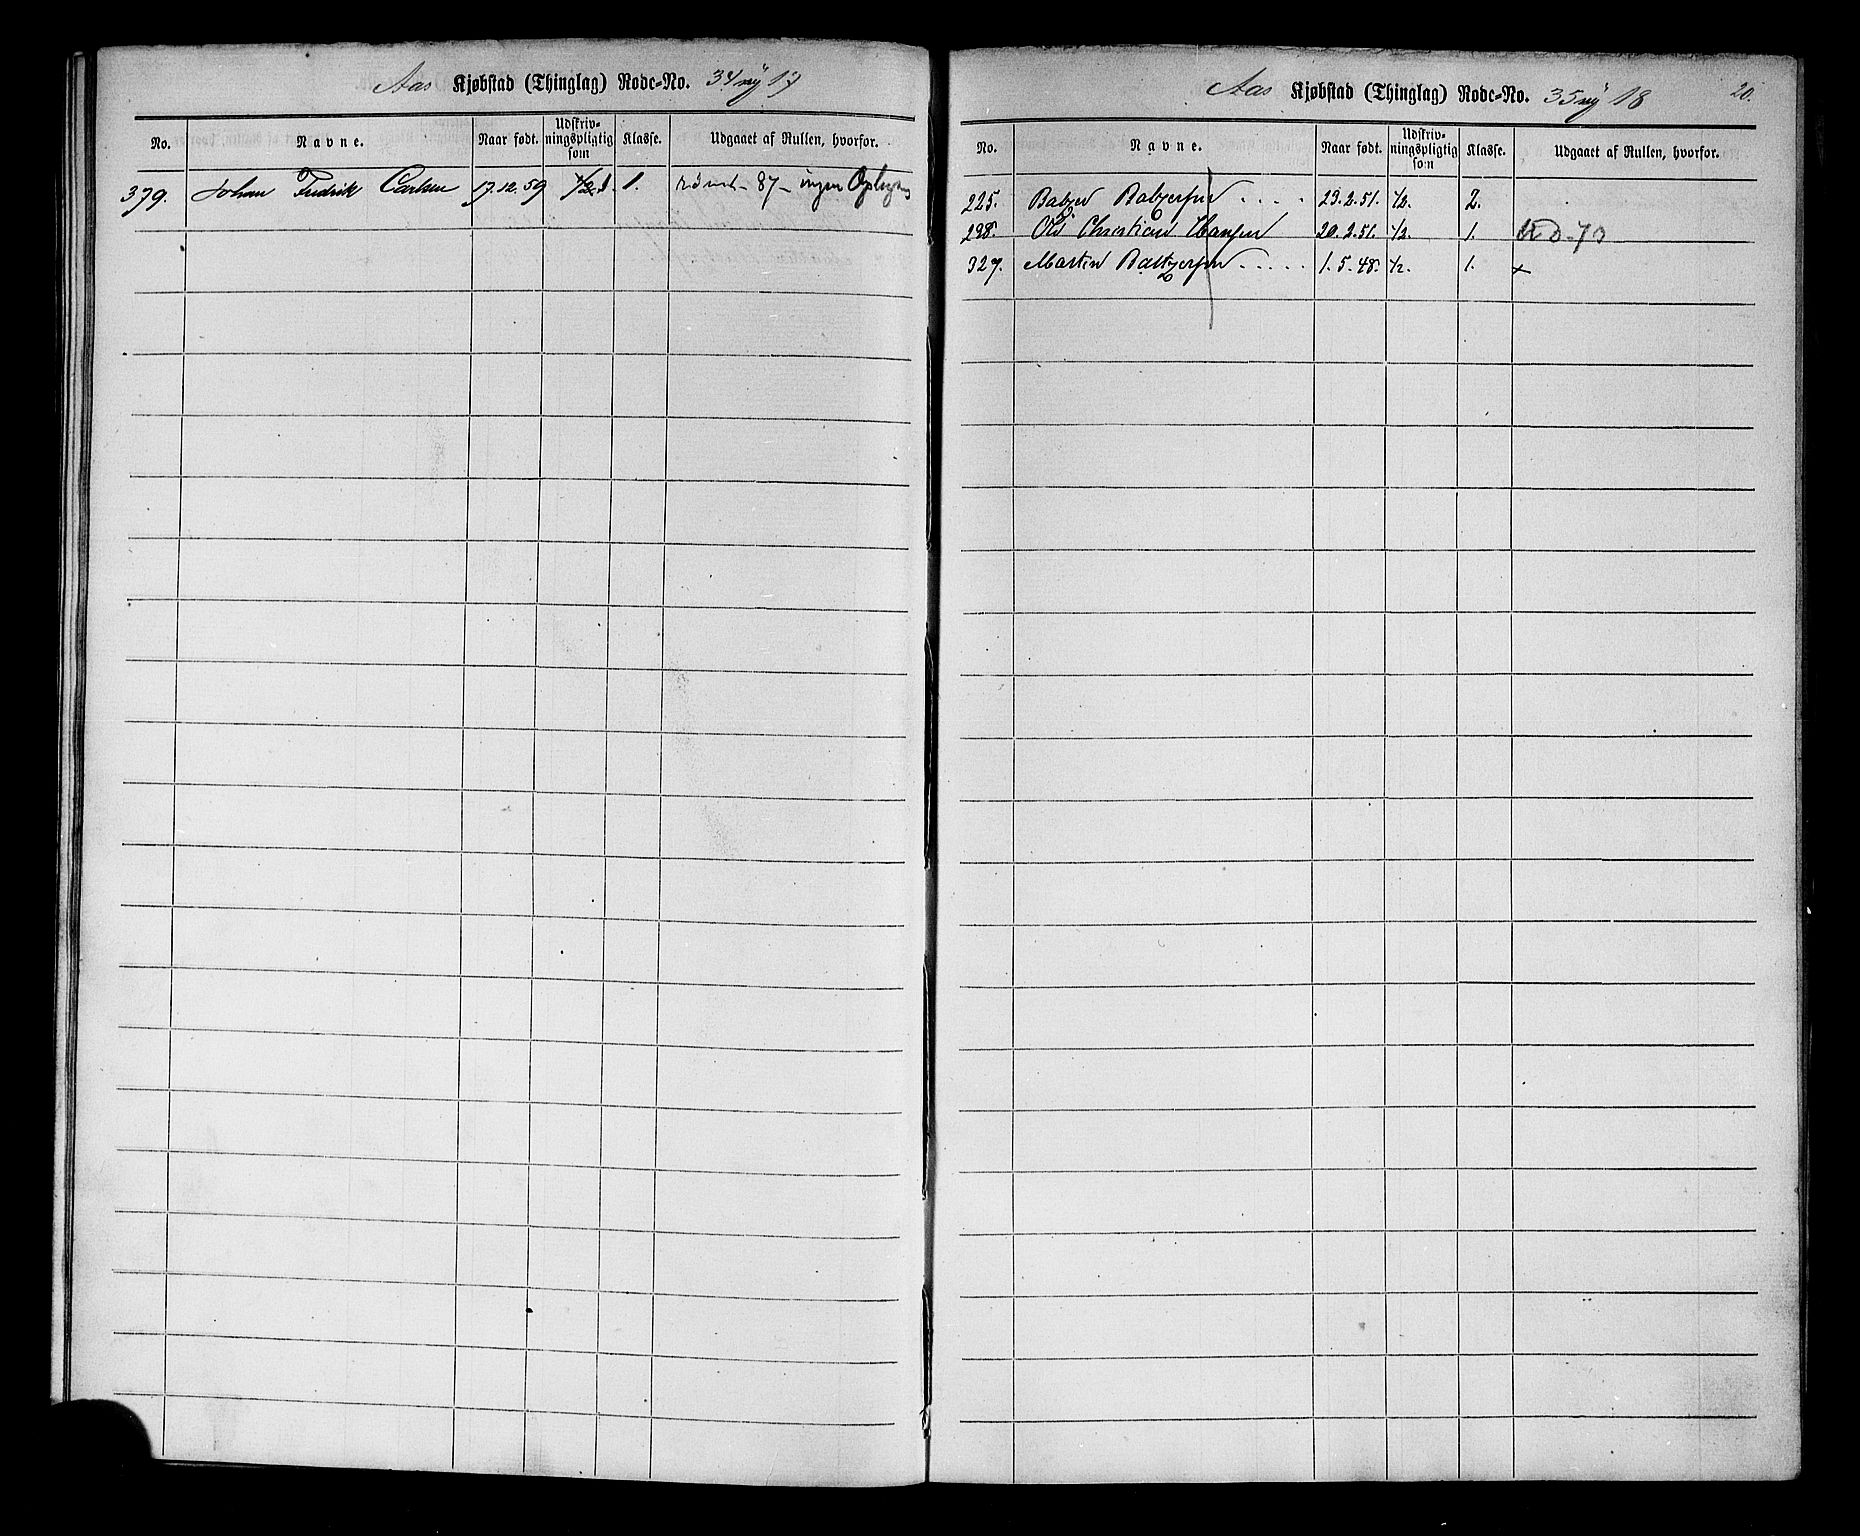 Aas Kjøbstad (Thinglag) Rode-No. 34 ny 17
No. Navne. Naar født. Udskrivningspligtig som Klasse. Udgaaet af Rullen, hvorfor.
379. Johan Fredrik Carlsen 17.12.59 1/2 1. 87 - ingen
Aas Kjøbstad (Thinglag) Rode-No. 35 ny 18 20.
No. Navne. Naar født. Udskrivningspligtig som Klasse. Udgaaet af Rullen, hvorfor.
225. Balzer Balzersen . . . . 23.2.51. 1/2. 2.
298. Ole Christian Hansen 20.2.51. 1/2. 1.
327. Martin Baltzersen . . . . . 1.5.48. 1/2. 1. +